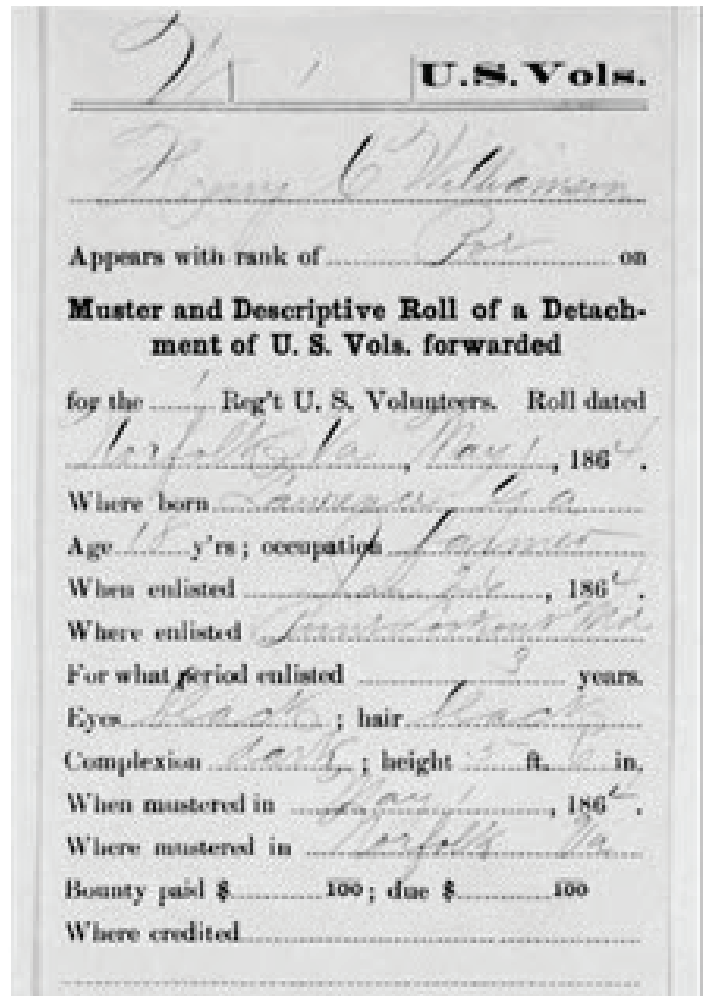 W | 1 | U.S. Vols.
Henry C Williamson
Appears with rank of Pvt on
Muster and Descriptive Roll of a Detach-
ment of U. S. Vols. forwarded
for the 1 Reg't U. S. Volunteers. Roll dated
Norfolk Va, May 1, 1864.
Where born Ga
Age 18 y'rs; occupation farmer
When enlisted Jan 26, 1864.
Where enlisted Point Lookout Md
For what period enlisted 3 years.
Eyes black; hair black
Complexion dark; height 5 ft. 6 in.
When mustered in May 1, 1864.
Where mustered in Norfolk Va
Bounty paid $ 100; due $ 100
Where credited